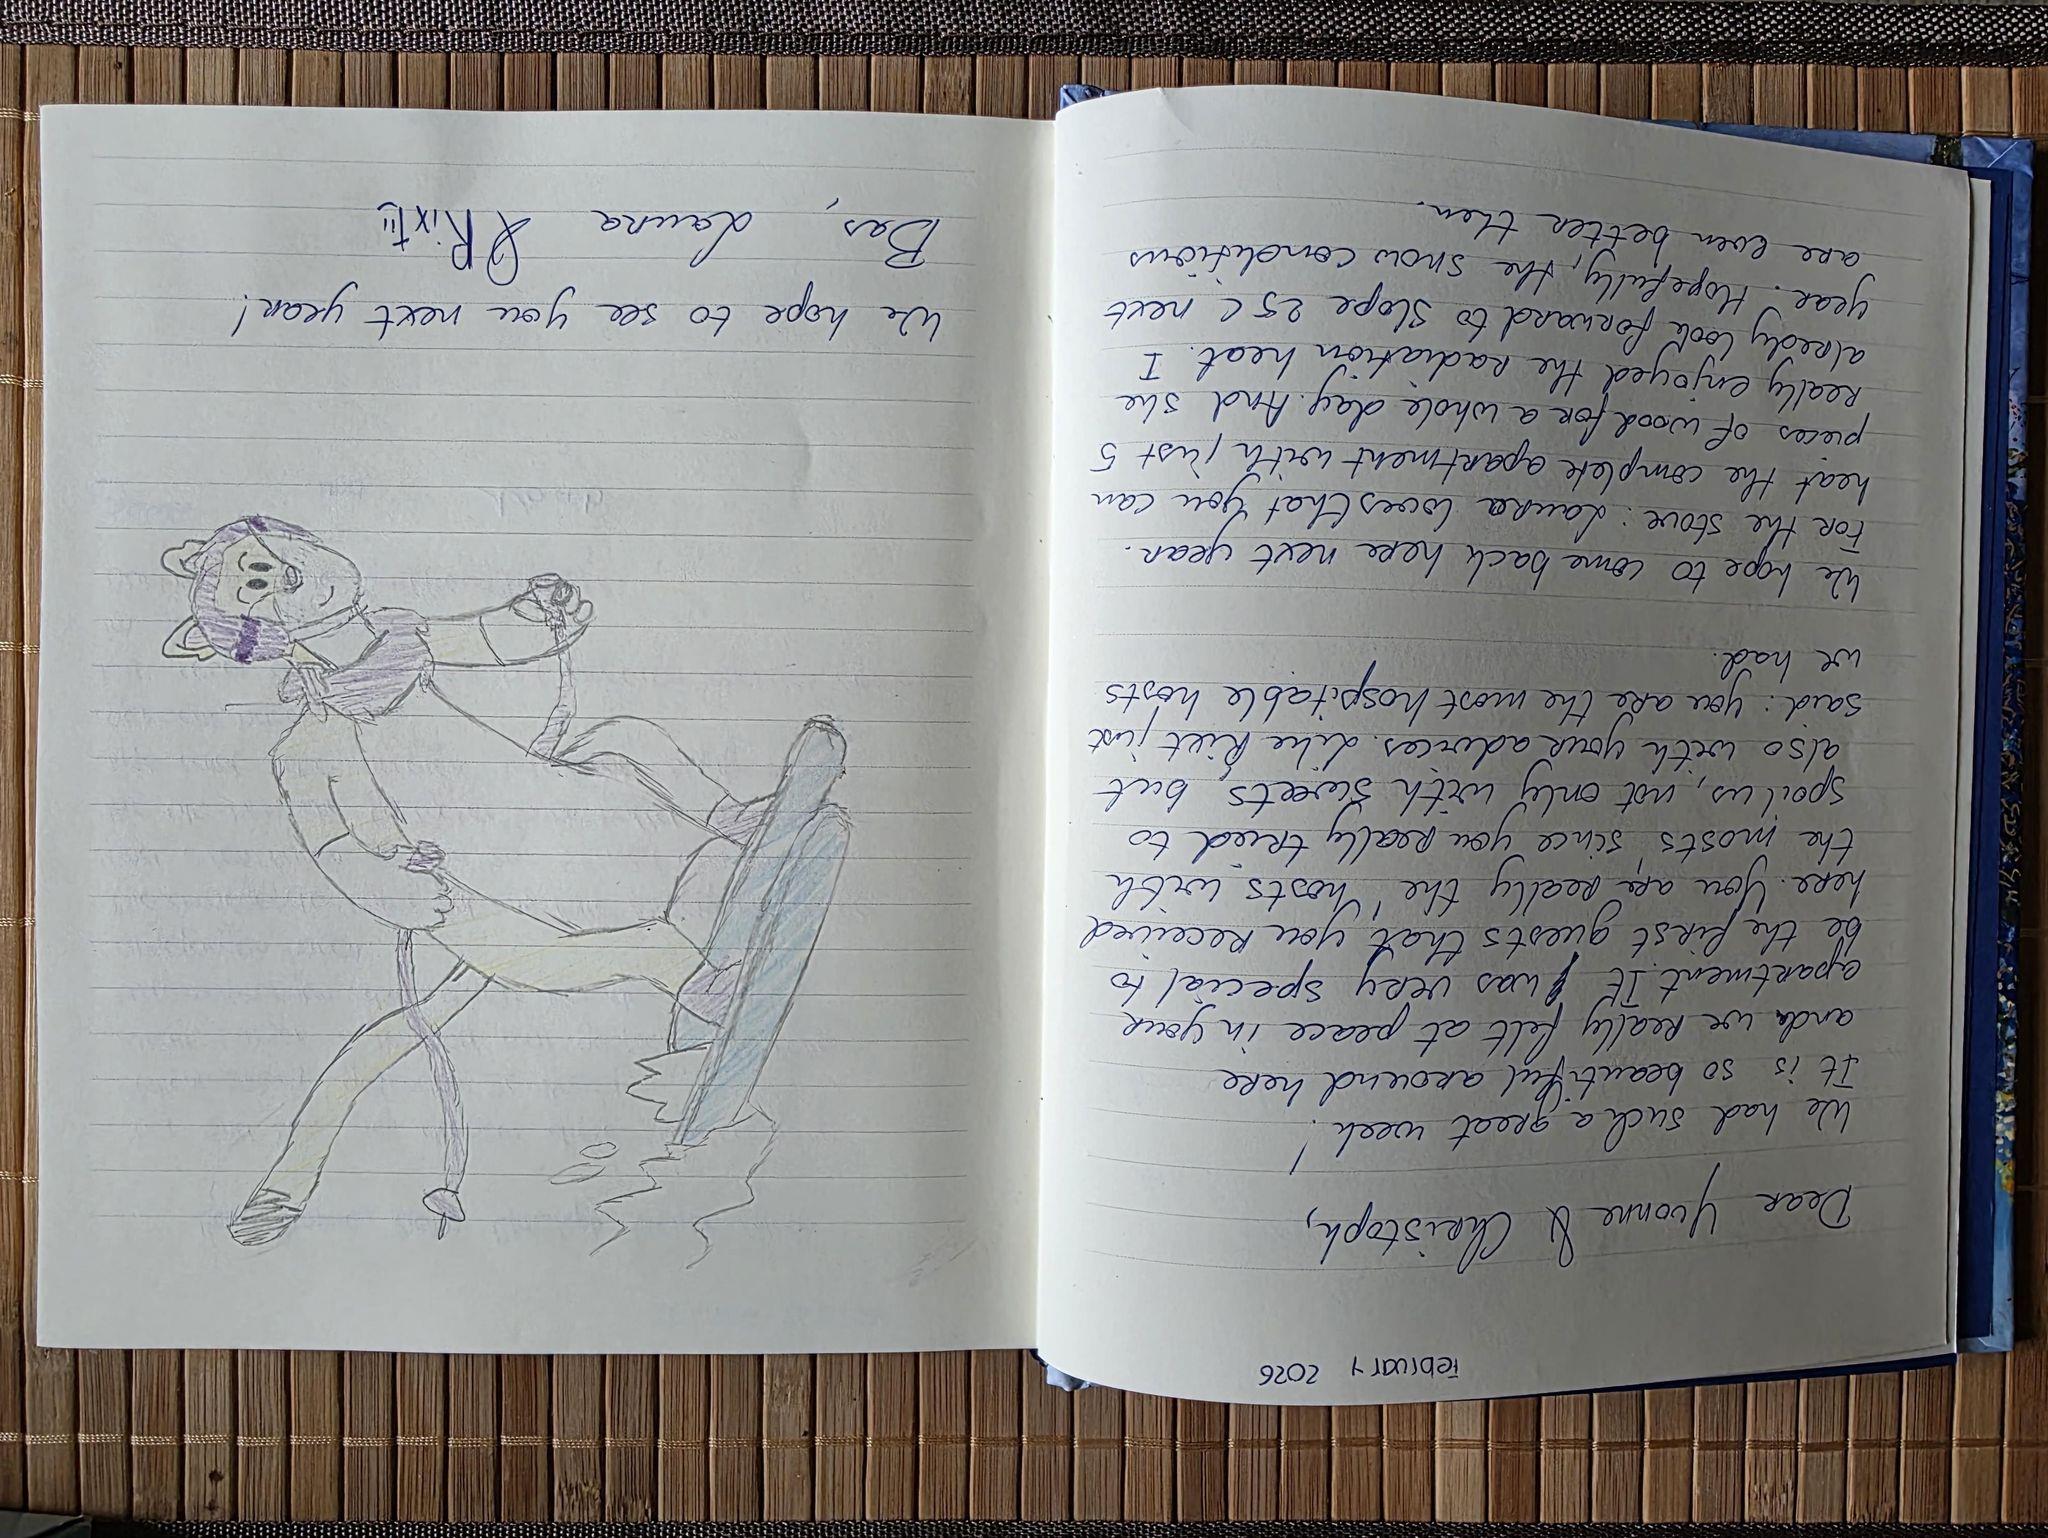 February 2026
Dear Yvonne & Christoph,
We had such a great week!
It is so beautiful around here
and we really felt at peace in your
apartment. It was very special to
be the first guests that you received
here. You are really 'the' hosts with
the mosts, since you really tried to
spoil us, not only with sweets but
also with your advices. Like Rixt just
said: you are the most hospitable hosts
we had.
We hope to come back here next year.
For the stove: Laura loves that you can
heat the complete apartment with just 5
pieces of wood for a whole day. And she
really enjoyed the radiation heat. I
alredy look forward to slope 25C next
year. Hopefully, the snow conditions
are even better then.
We hope to see you next year!
Bas, Laura & Rixt